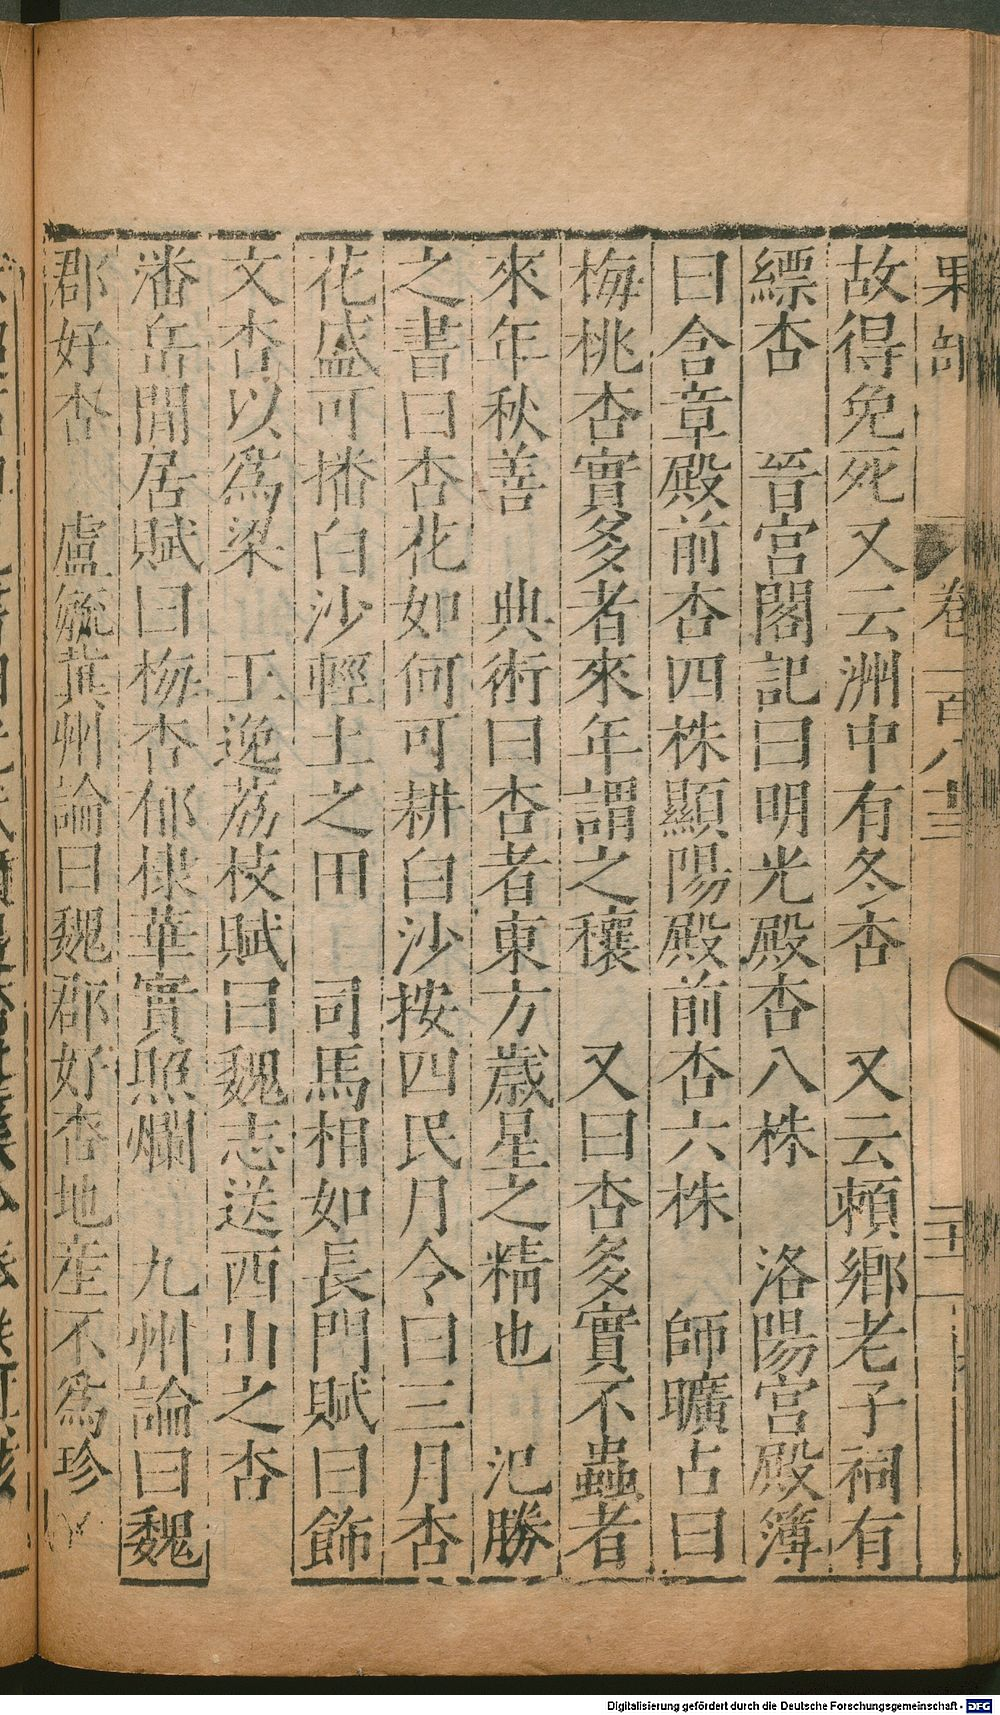 果部 卷一百八十三 二十一
故得免死又云洲中有冬杏 又云頼鄉老子祠有
縹杏 晉宫閣記曰明光殿杏八株 洛陽宫殿簿
曰含章殿前杏四株顯陽殿前杏六株 師曠占曰
梅桃杏實多者來年謂之穰 又曰杏多實不蟲者
來年秋善 典術曰杏者東方歲星之精也 氾勝
之書曰杏花如何可耕白沙按四民月令曰三月杏
花盛可播白沙輕土之田 司馬相如長門賦曰飾
文杏以為梁 王逸荔枝賦曰魏志送西山之杏
潘岳閒居賦曰梅杏郁棣華實照爛 九州論曰魏
郡好杏 盧毓兾州論曰魏郡好杏地産不為珍
Digitalisierung gefördert durch die Deutsche Forschungsgemeinschaft - DFG